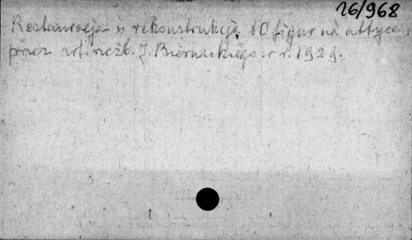 16/968
Restauracja z rekonstrukcją 10 figur na attyce,
przez art. rzźb. J. Biernackiego. w r. 1929.